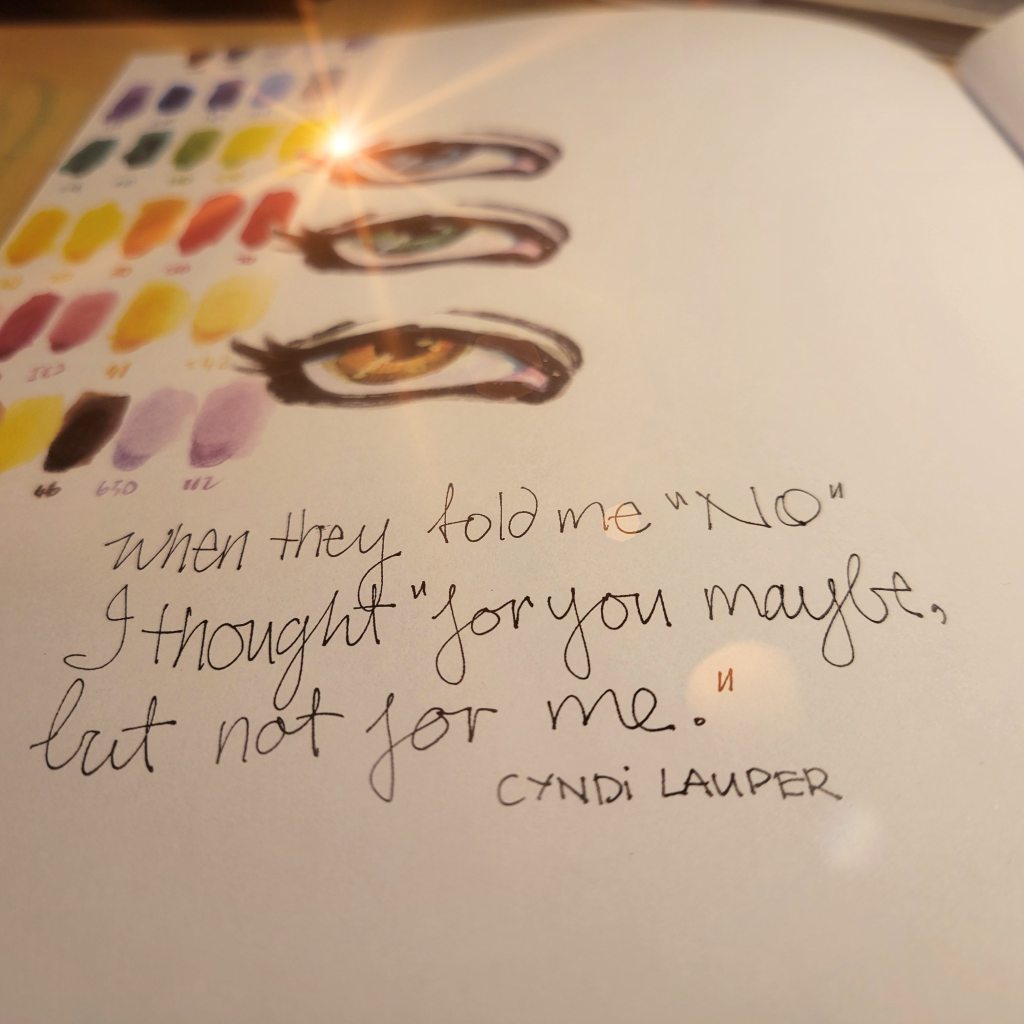 46 630 112
when they told me "NO"
I thought "for you maybe,
but not for me."
CYNDi LAUPER